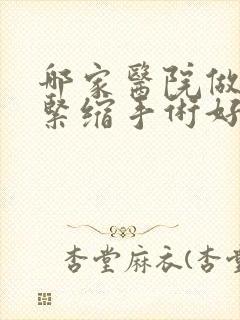 哪家醫院做
緊縮手術好
杏堂麻衣(杏堂